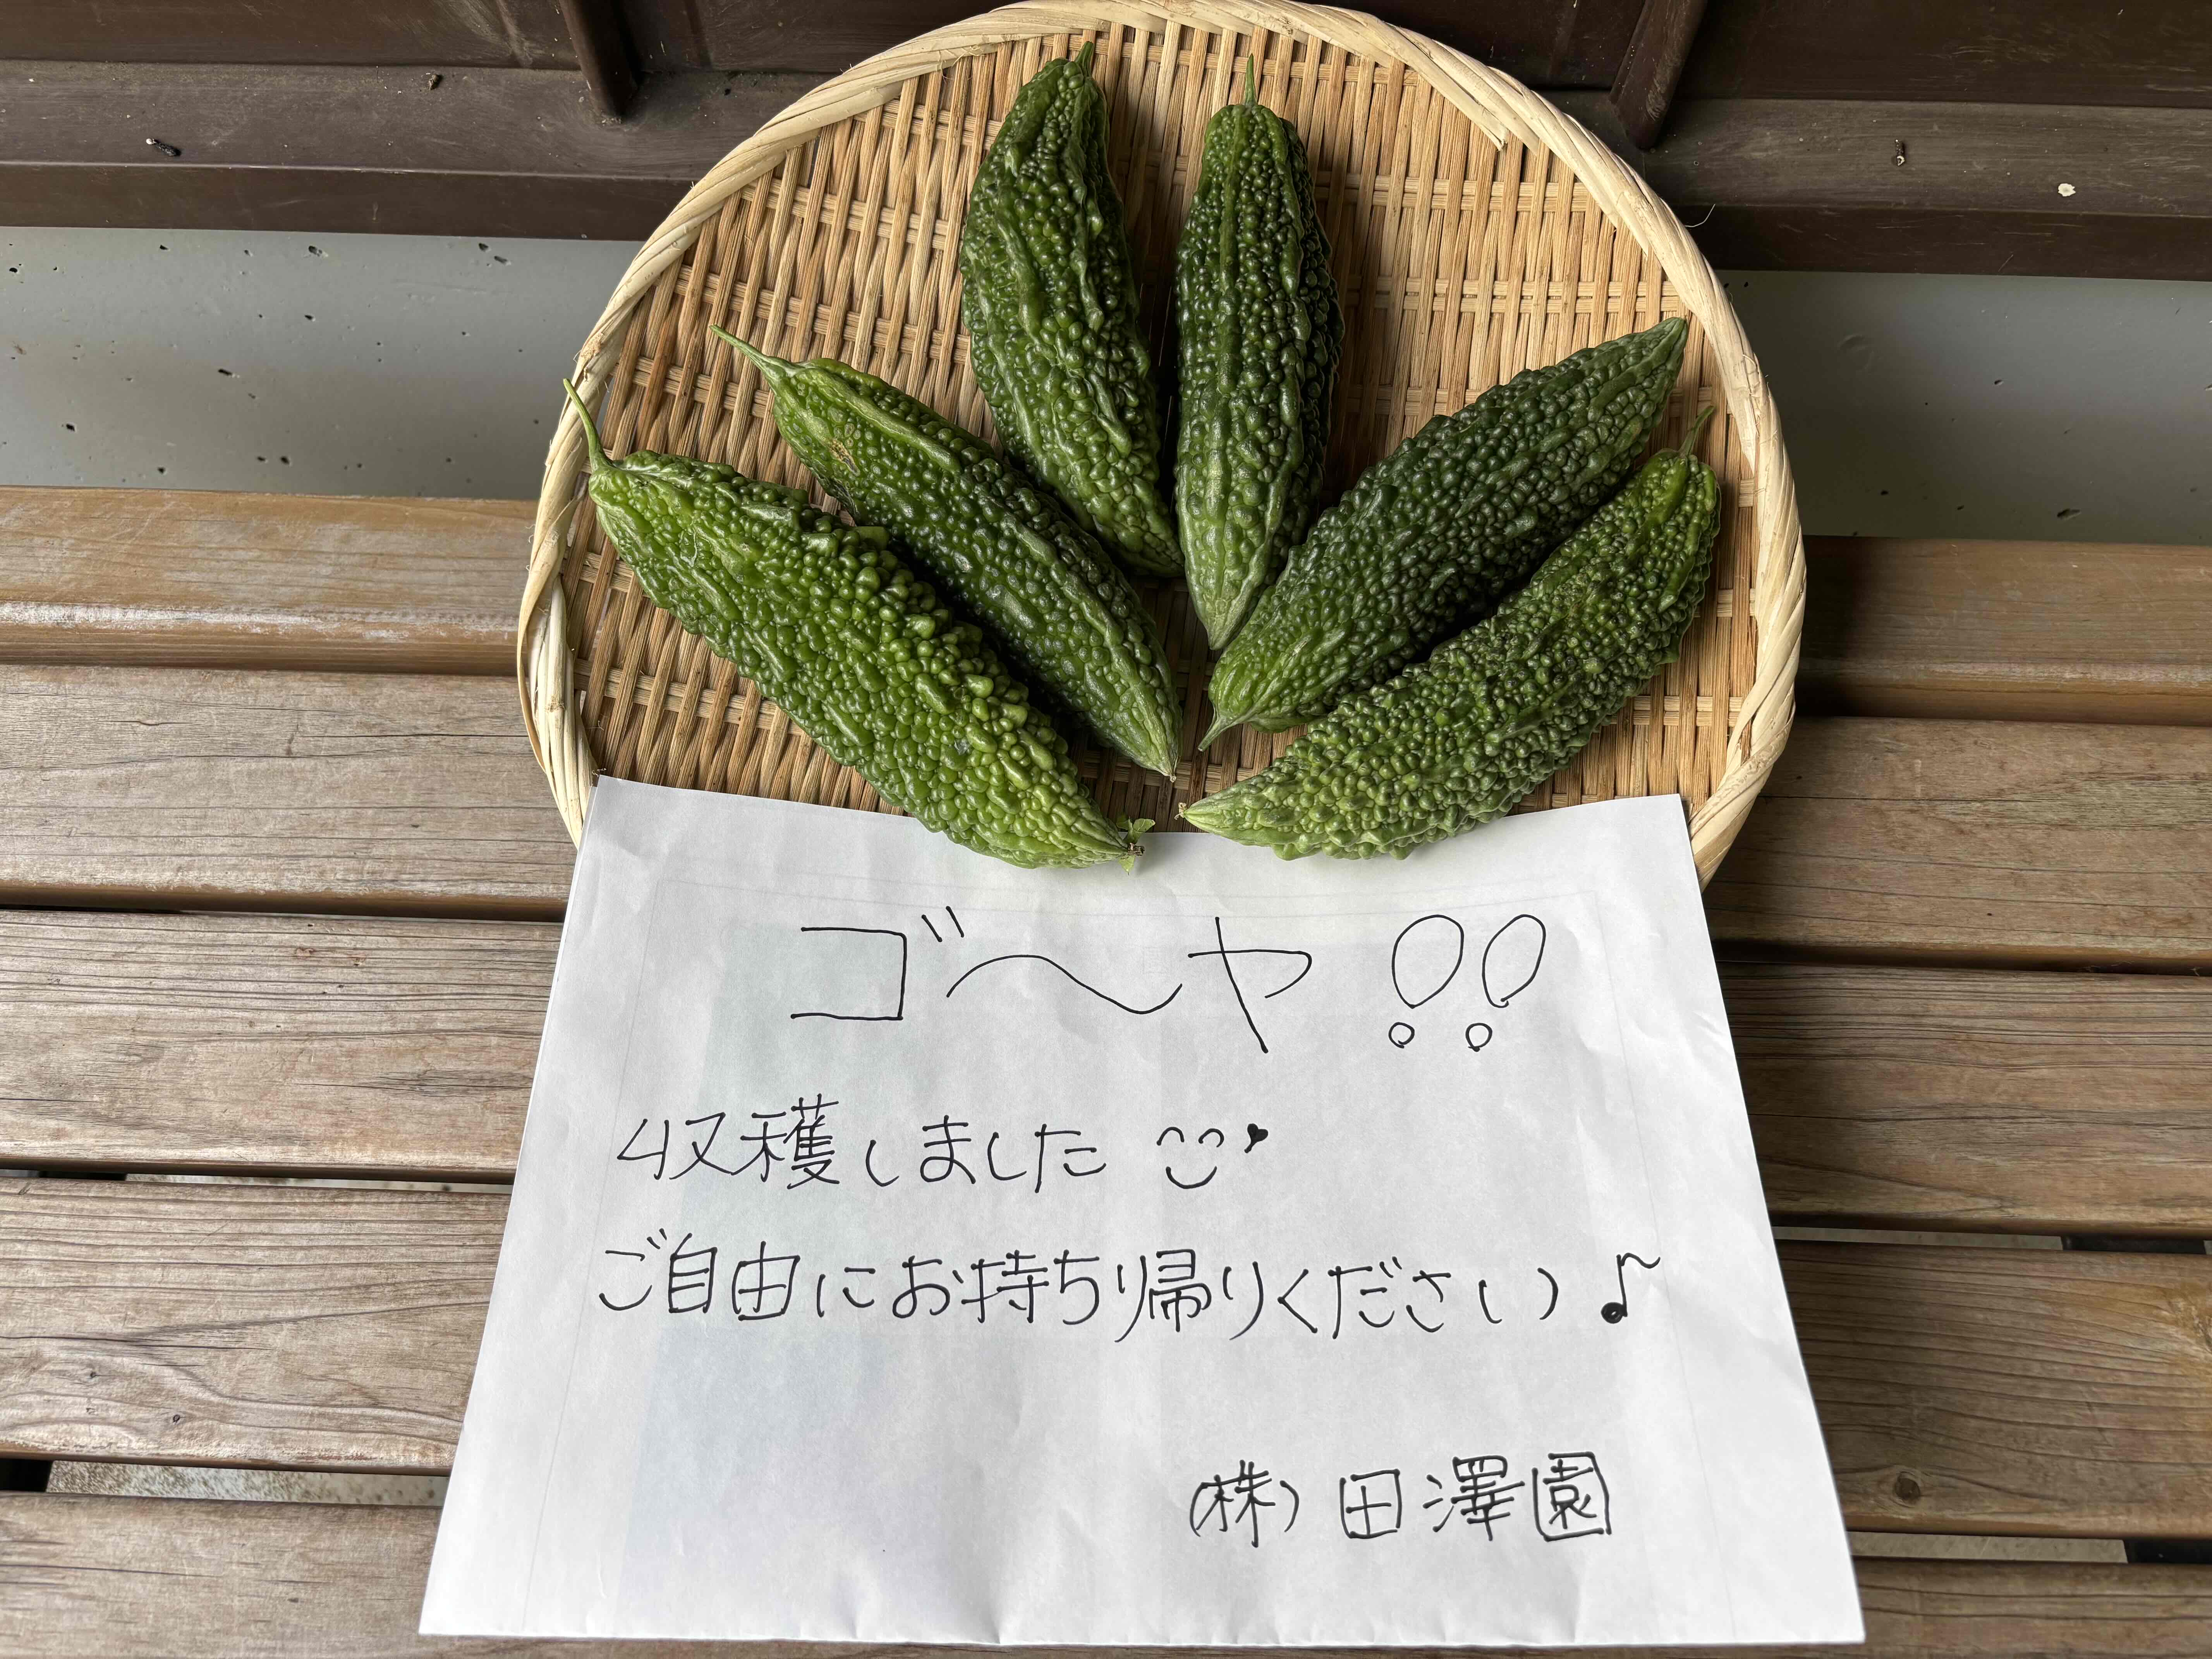 ゴ〜ヤ!!
収穫しました
ご自由にお持ち帰りください♪
(株)田澤園